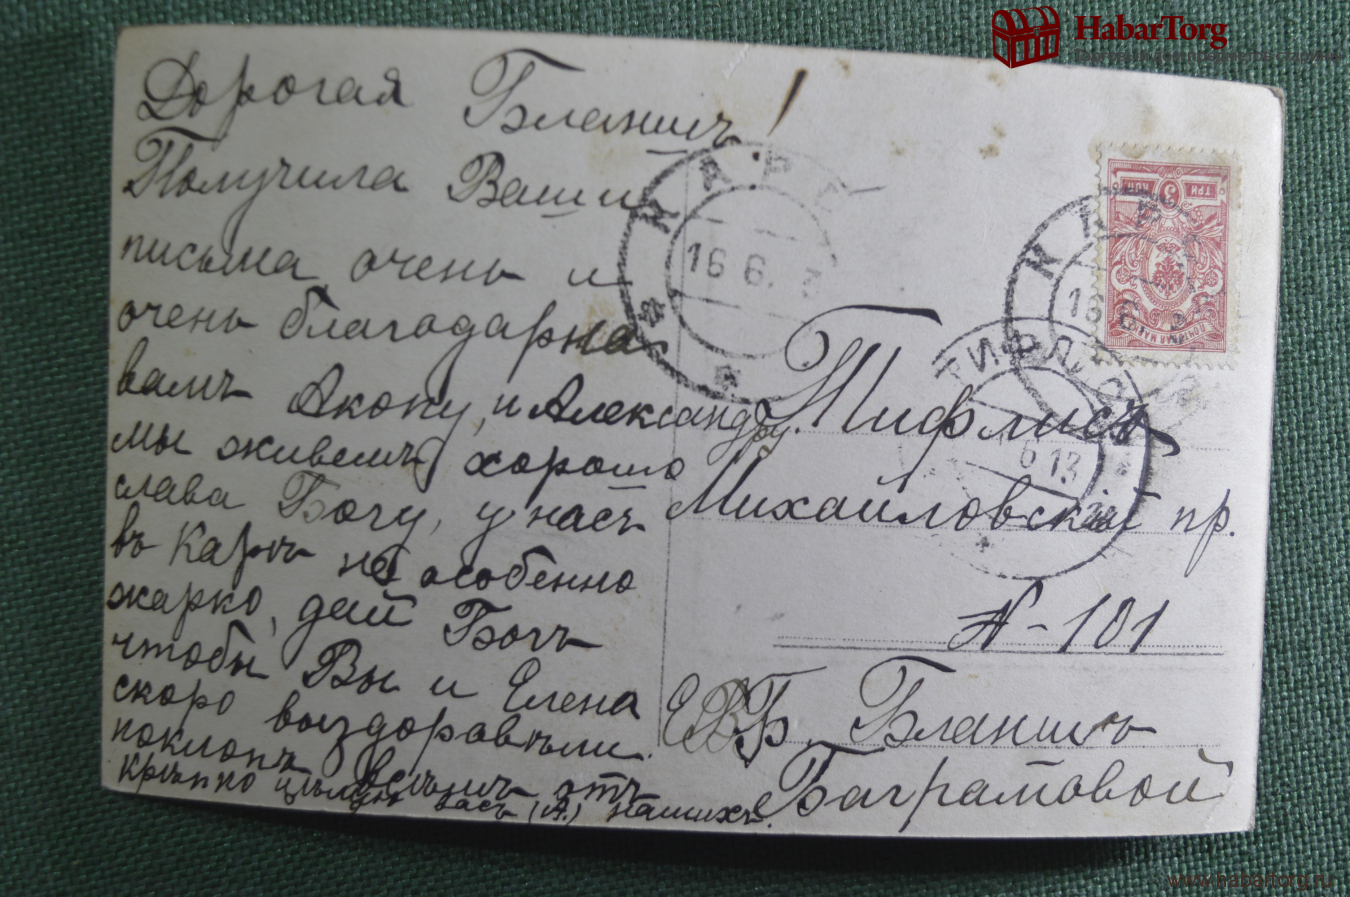 HabarTorg
Дорогая Бланшъ!
Получила Ваши
письма очень и
очень благодарна
вамъ Акопу, и Александру.
мы живемъ хорошо
слава Богу, у насъ
въ Карсѣ не особенно
жарко, дай Богъ
чтобы Вы и Елена
скоро выздоравѣли.
поклонъ всѣмъ отъ
нашихъ.
крѣпко цѣлую васъ (А.)
КАРС
16 6. 3
КАРС
16 6
ТРИ 3 КОП
ТИФЛИС
6 13
Тифлисъ
Михайловский пр.
N-101
ЕВБ. Бланшъ
Багратовой
www.habartorg.ru